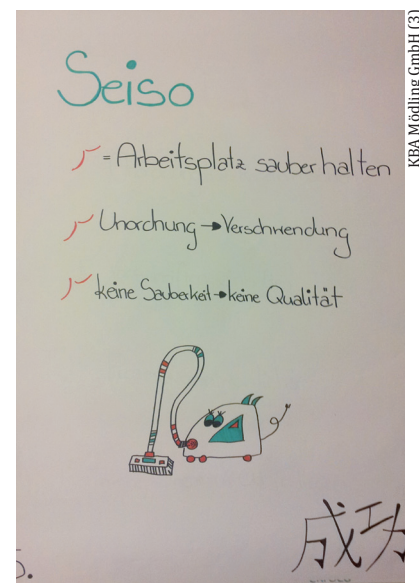 Seiso
= Arbeitsplatz sauber halten
Unordnung → Verschwendung
keine Sauberkeit → keine Qualität
成功
5.
KBA Mödling GmbH (3)